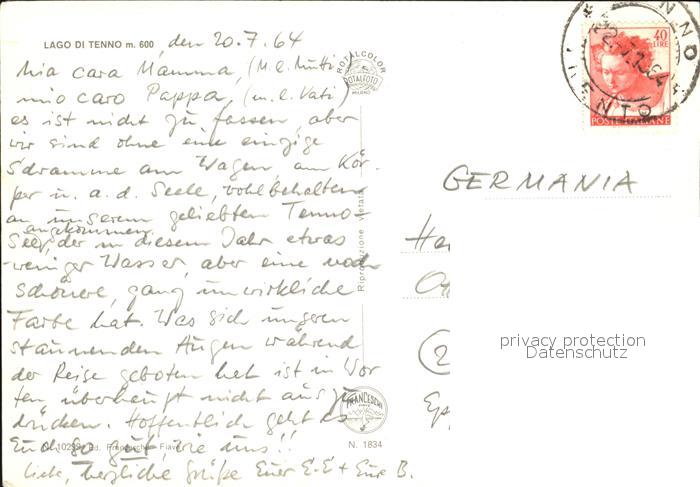 LAGO DI TENNO m. 600, den 20.7.64
Mia cara Mamma, (M.l. Mutti)
mio caro Pappa, (m.l. Vati)
es ist nicht zu fassen, aber
wir sind ohne eine einzige
Schramme am Wagen, am Kör-
per u. a. d. Seele, wohlbehalten
an unserem geliebten Tenno-
See angekommen, der in diesem Jahr etwas
weniger Wasser, aber eine noch
schönere, ganz unwirkliche
Farbe hat. Was sich unseren
staunenden Augen während
der Reise geboten hat ist in Wor-
ten überhaupt nicht auszu-
drücken. Hoffentlich geht es
Euch so gut, wie uns!!
Liebe, herzliche Grüße Euer E.E + Eure B.
ROTALCOLOR
ROTALFOTO
MILANO
Riproduzione vietata
FRANCESCHI
N. 1834
N. 10299 Ed. Fiave
40
LIRE
POSTE ITALIANE
TENNO
TRENTO
GERMANIA
privacy protection
Datenschutz